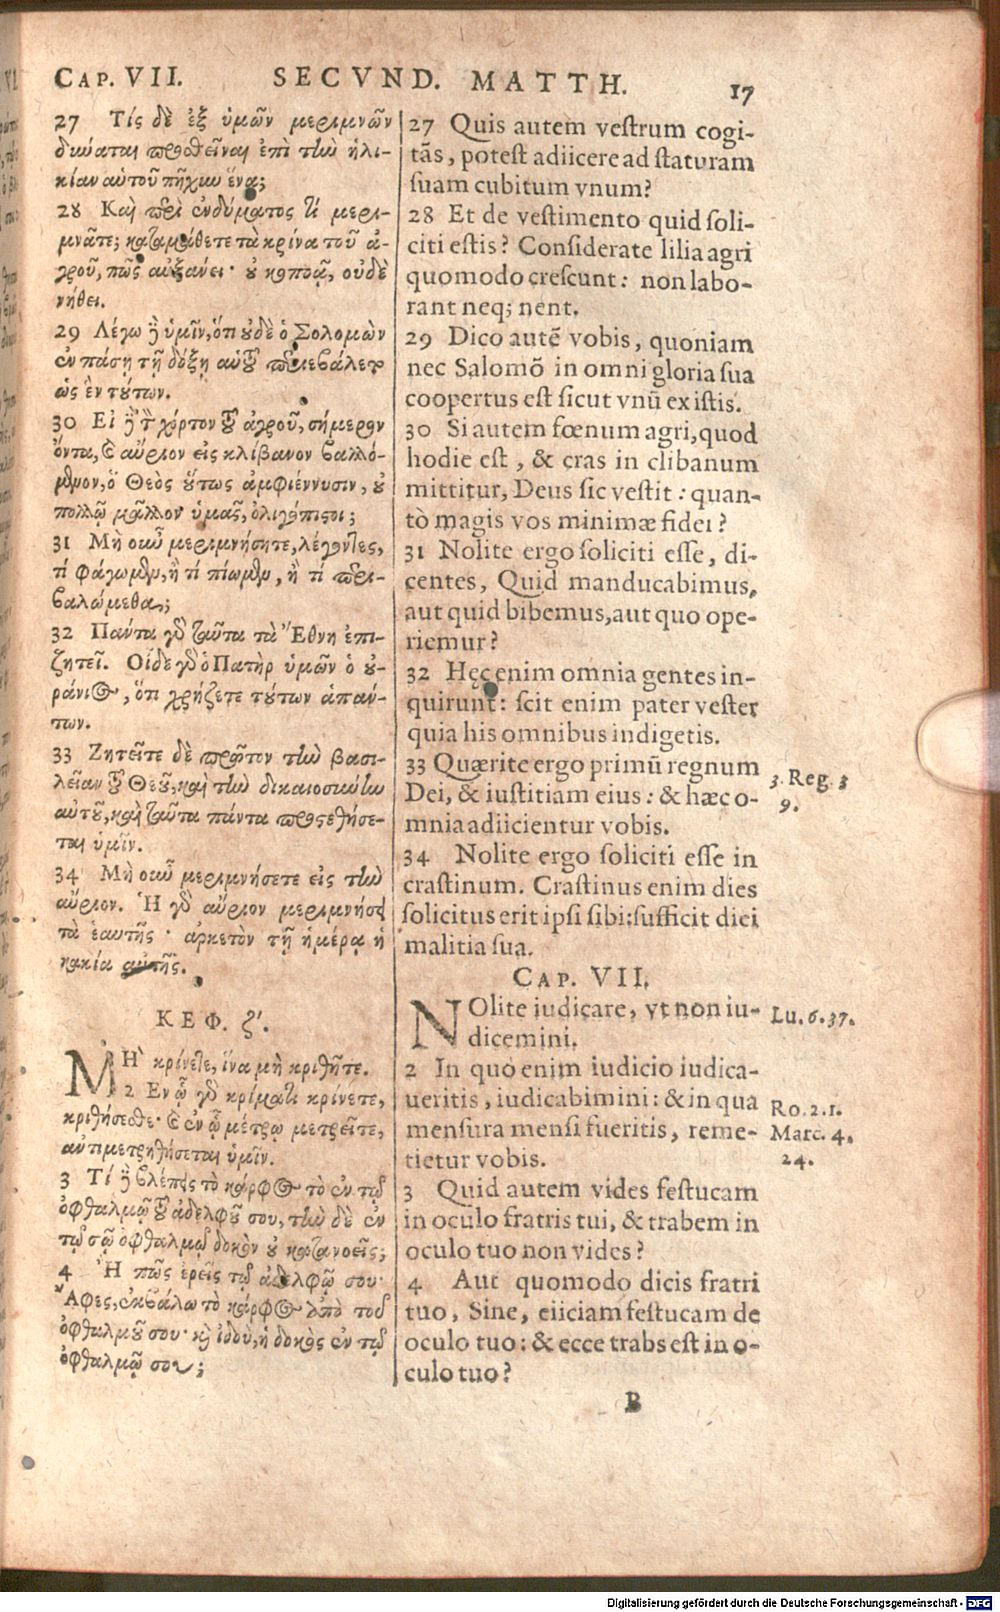 CAP. VII. SECVND. MATTH. 17
27 Τίς δὲ ἐξ ὑμῶν μεριμνῶν
δύναται προσθεῖναι ἐπὶ τὴν ἡλι-
κίαν αὑτοῦ πῆχυν ἕνα;
28 Καὶ περὶ ἐνδύματος τί μερι-
μνᾶτε; καταμάθετε τὰ κρίνα τοῦ ἀ-
γροῦ, πῶς αὐξάνει· οὐ κοπιᾷ, οὐδὲ
νήθει.
29 Λέγω δὲ ὑμῖν, ὅτι οὐδὲ ὁ Σολομὼν
ἐν πάσῃ τῇ δόξῃ αὑτοῦ περιεβάλετο
ὡς ἓν τούτων.
30 Εἰ δὲ τὸν χόρτον τοῦ ἀγροῦ, σήμερον
ὄντα, καὶ αὔριον εἰς κλίβανον βαλλό-
μενον, ὁ Θεὸς οὕτως ἀμφιέννυσιν, οὐ
πολλῷ μᾶλλον ὑμᾶς, ὀλιγόπιστοι;
31 Μὴ οὖν μεριμνήσητε, λέγοντες,
τί φάγωμεν, ἢ τί πίωμεν, ἢ τί περι-
βαλώμεθα;
32 Πάντα γὰρ ταῦτα τὰ Ἔθνη ἐπι-
ζητεῖ. Οἶδε γὰρ ὁ Πατὴρ ὑμῶν ὁ οὐ-
ράνιος, ὅτι χρῄζετε τούτων ἁπάν-
των.
33 Ζητεῖτε δὲ πρῶτον τὴν βασι-
λείαν τοῦ Θεοῦ, καὶ τὴν δικαιοσύνην
αὐτοῦ, καὶ ταῦτα πάντα προςεθήσε-
ται ὑμῖν.
34 Μὴ οὖν μεριμνήσετε εἰς τὴν
αὔριον. Ἡ γὰρ αὔριον μεριμνήσει
τὰ ἑαυτῆς· ἀρκετὸν τῇ ἡμέρᾳ ἡ
κακία αὐτῆς.
ΚΕΦ. ζʹ.
ΜῊ κρίνετε, ἵνα μὴ κριθῆτε.
2 Ἐν ᾧ γὰρ κρίματι κρίνετε,
κριθήσεσθε· καὶ ἐν ᾧ μέτρῳ μετρεῖτε,
ἀντιμετρηθήσεται ὑμῖν.
3 Τί δὲ βλέπεις τὸ κάρφος τὸ ἐν τῷ
ὀφθαλμῷ τοῦ ἀδελφοῦ σου, τὴν δὲ ἐν
τῷ σῷ ὀφθαλμῷ δοκὸν οὐ κατανοεῖς;
4 Ἢ πῶς ἐρεῖς τῷ ἀδελφῷ σου·
Ἄφες, ἐκβάλω τὸ κάρφος ἀπὸ τοῦ
ὀφθαλμοῦ σου· καὶ ἰδοὺ, ἡ δοκὸς ἐν τῷ
ὀφθαλμῷ σου;
27 Quis autem vestrum cogi-
tãs, potest adiicere ad staturam
suam cubitum vnum?
28 Et de vestimento quid soli-
citi estis? Considerate lilia agri
quomodo crescunt: non labo-
rant neq; nent.
29 Dico autẽ vobis, quoniam
nec Salomõ in omni gloria sua
coopertus est sicut vnũ ex istis.
30 Si autem fœnum agri, quod
hodie est, & cras in clibanum
mittitur, Deus sic vestit: quan-
tò magis vos minimæ fidei?
31 Nolite ergo soliciti esse, di-
centes, Quid manducabimus,
aut quid bibemus, aut quo ope-
riemur?
32 Hęc enim omnia gentes in-
quirunt: scit enim pater vester
quia his omnibus indigetis.
33 Quærite ergo primũ regnum
Dei, & iustitiam eius: & hæc o-
mnia adiicientur vobis.
3. Reg. 3
9.
34 Nolite ergo soliciti esse in
crastinum. Crastinus enim dies
solicitus erit ipsi sibi: sufficit diei
malitia sua.
CAP. VII.
NOlite iudicare, vt non iu-
dicemini.
Lu. 6. 37.
2 In quo enim iudicio iudica-
ueritis, iudicabimini: & in qua
mensura mensi fueritis, reme-
tietur vobis.
Ro. 2. 1.
Marc. 4.
24.
3 Quid autem vides festucam
in oculo fratris tui, & trabem in
oculo tuo non vides?
4 Aut quomodo dicis fratri
tuo, Sine, eiiciam festucam de
oculo tuo: & ecce trabs est in o-
culo tuo?
B
Digitalisierung gefördert durch die Deutsche Forschungsgemeinschaft - DFG